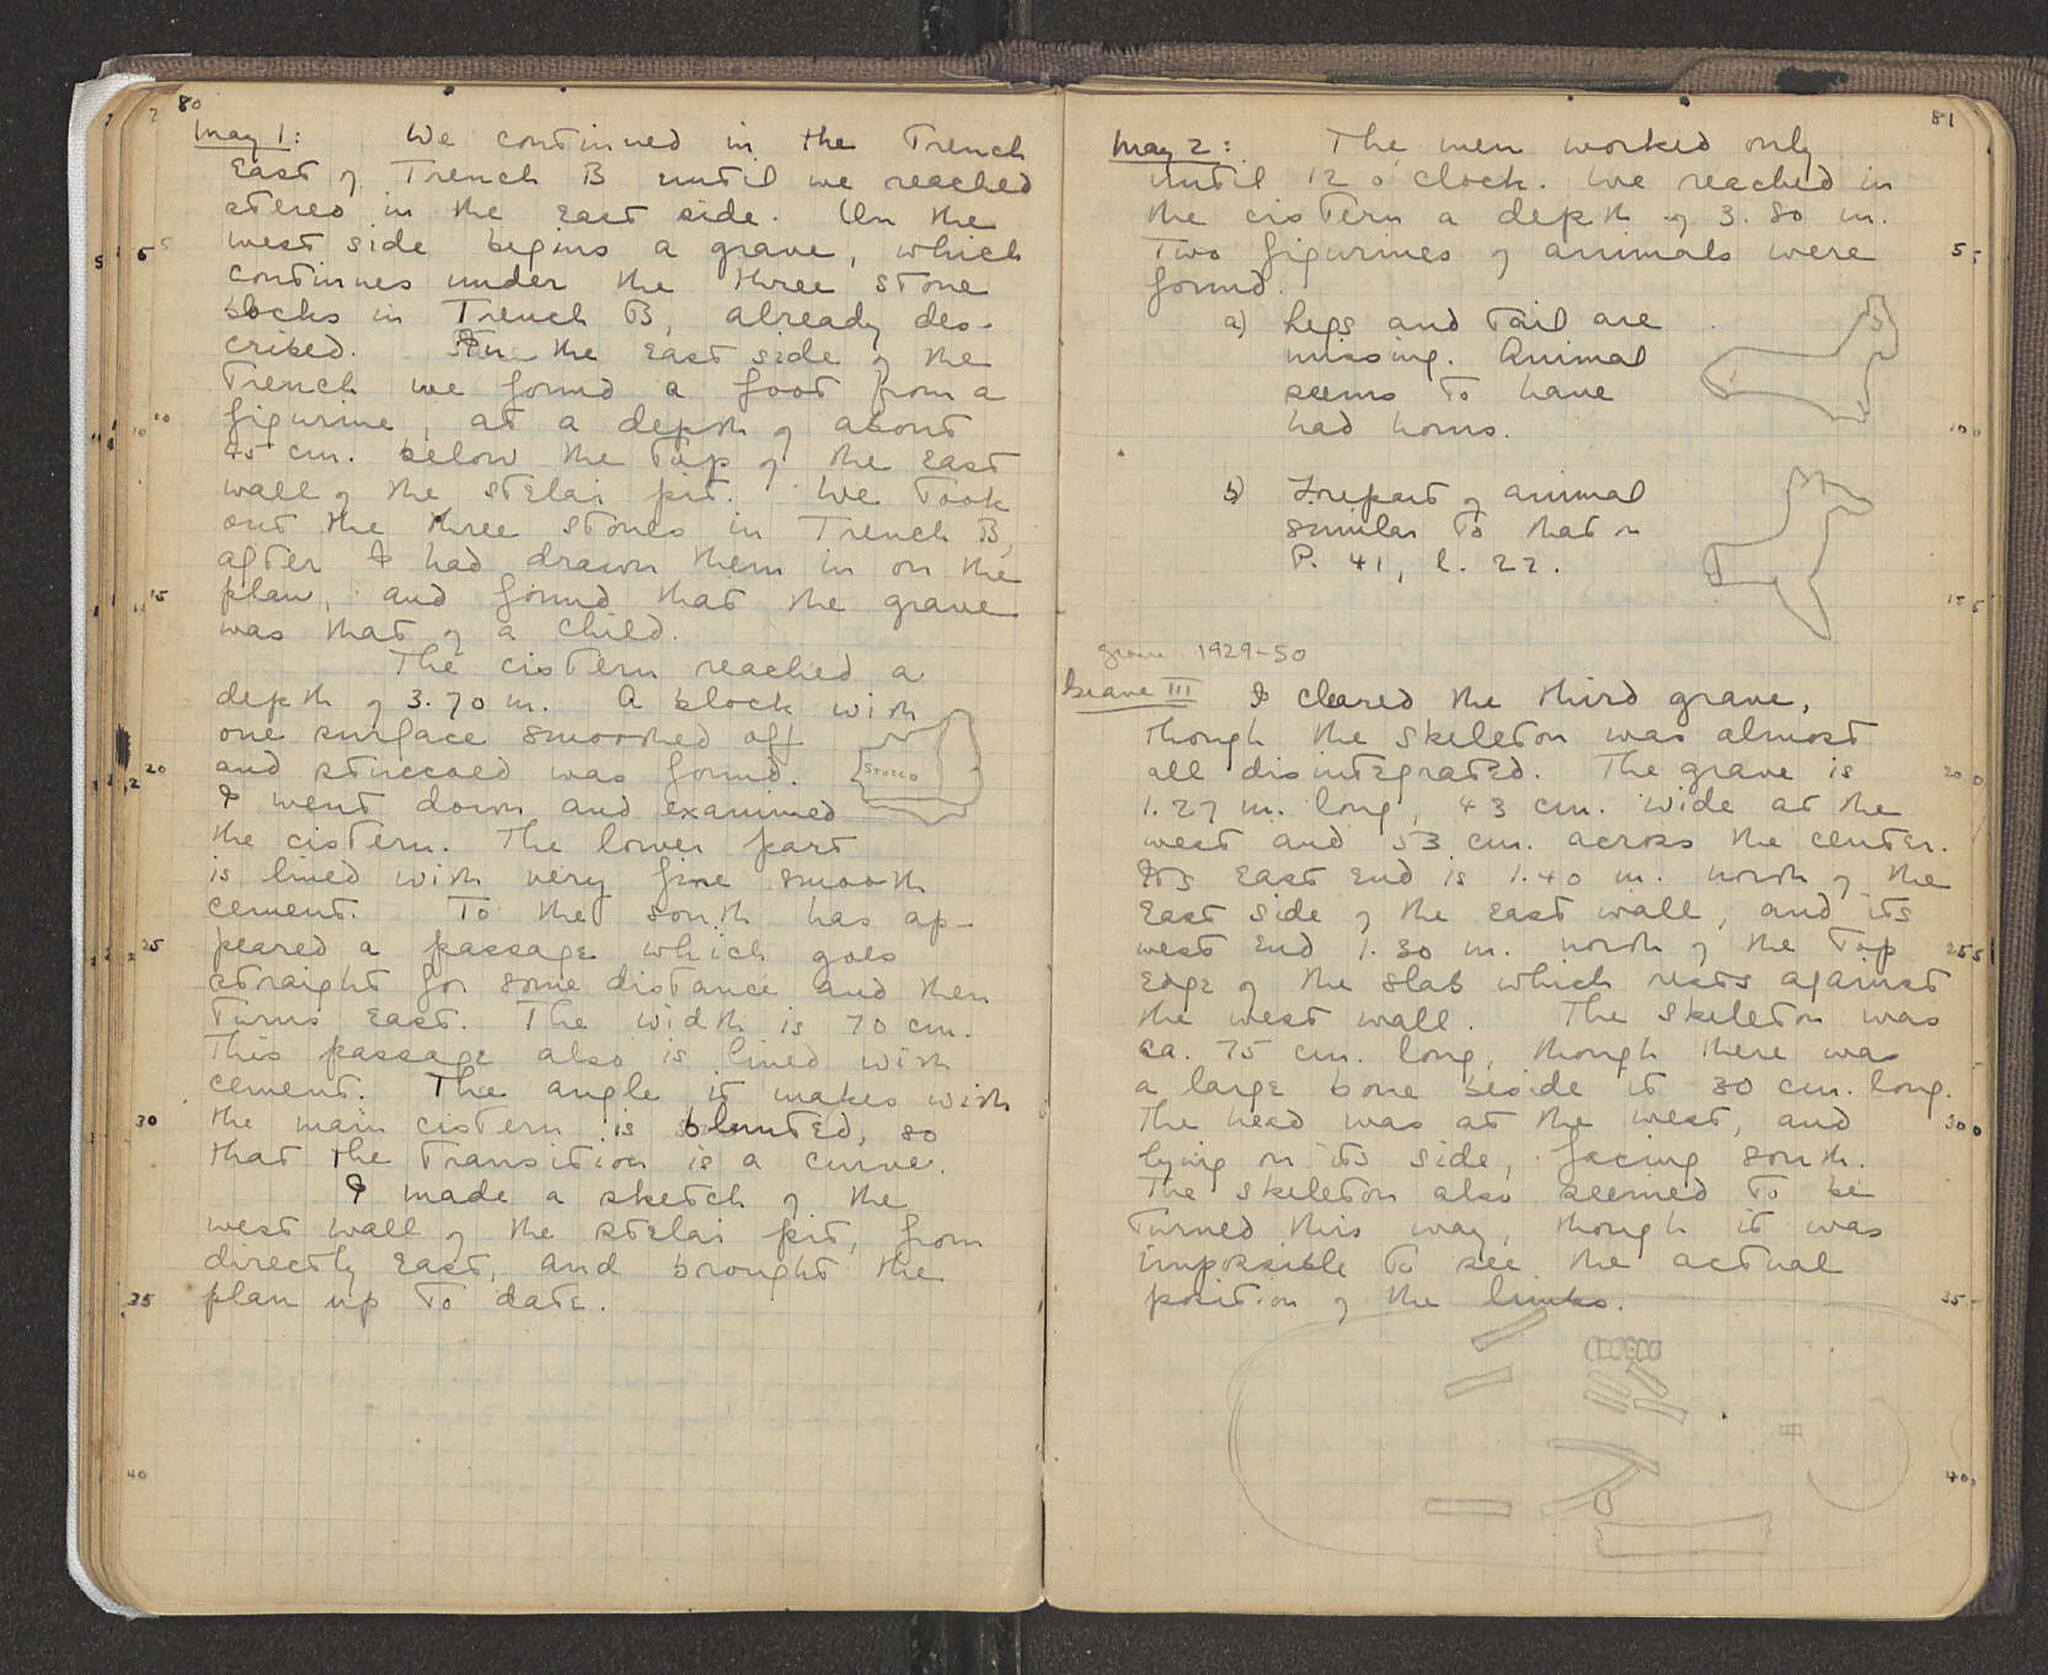 80
May 1: We continued in the Trench
East of Trench B until we reached
stereo in the East side. On the
5 west side begins a grave, which
continues under the three stone
blocks in Trench B, already des-
cribed. In the East side of the
Trench we found a foot from a
10 figurine, at a depth of about
45 cm. below the top of the East
wall of the stelai pit. We took
out the three stones in Trench B,
after I had drawn them in on the
15 plan, and found that the grave
was that of a child.
The cistern reached a
depth of 3.70 m. A block with
one surface smoothed off
20 and stuccoed was found.
Stucco
I went down and examined
the cistern. The lower part
is lined with very fine smooth
cement. To the south has ap-
25 peared a passage which goes
straight for some distance and then
Turns East. The width is 70 cm.
This passage also is lined with
cement. The angle it makes with
30 the main cistern is blunted, so
that the transition is a curve.
I made a sketch of the
west wall of the stelai pit, from
directly East, and brought the
35 plan up to date.
40
81
May 2: The men worked only
until 12 o'clock. We reached in
the cistern a depth of 3.80 m.
Two figurines of animals were 5
found.
a) Legs and Tail are
missing. Animal
seems to have
had horns. 10
b) Forepart of animal
similar to that on
P. 41, l. 22.
15
grave 1929-50
Grave III I cleared the third grave,
though the skeleton was almost
all disintegrated. The grave is 20
1.27 m. long, 43 cm. wide at the
west and 53 cm. across the center.
Its East End is 1.40 m. north of the
East side of the East wall, and its
west End 1.30 m. north of the Top 25
Edge of the slab which rests against
the west wall. The skeleton was
ca. 75 cm. long, though there was
a large bone beside it 30 cm. long.
The head was at the west, and 30
lying on its side, facing south.
The skeleton also seemed to be
turned this way, though it was
impossible to see the actual
position of the limbs. 35
40